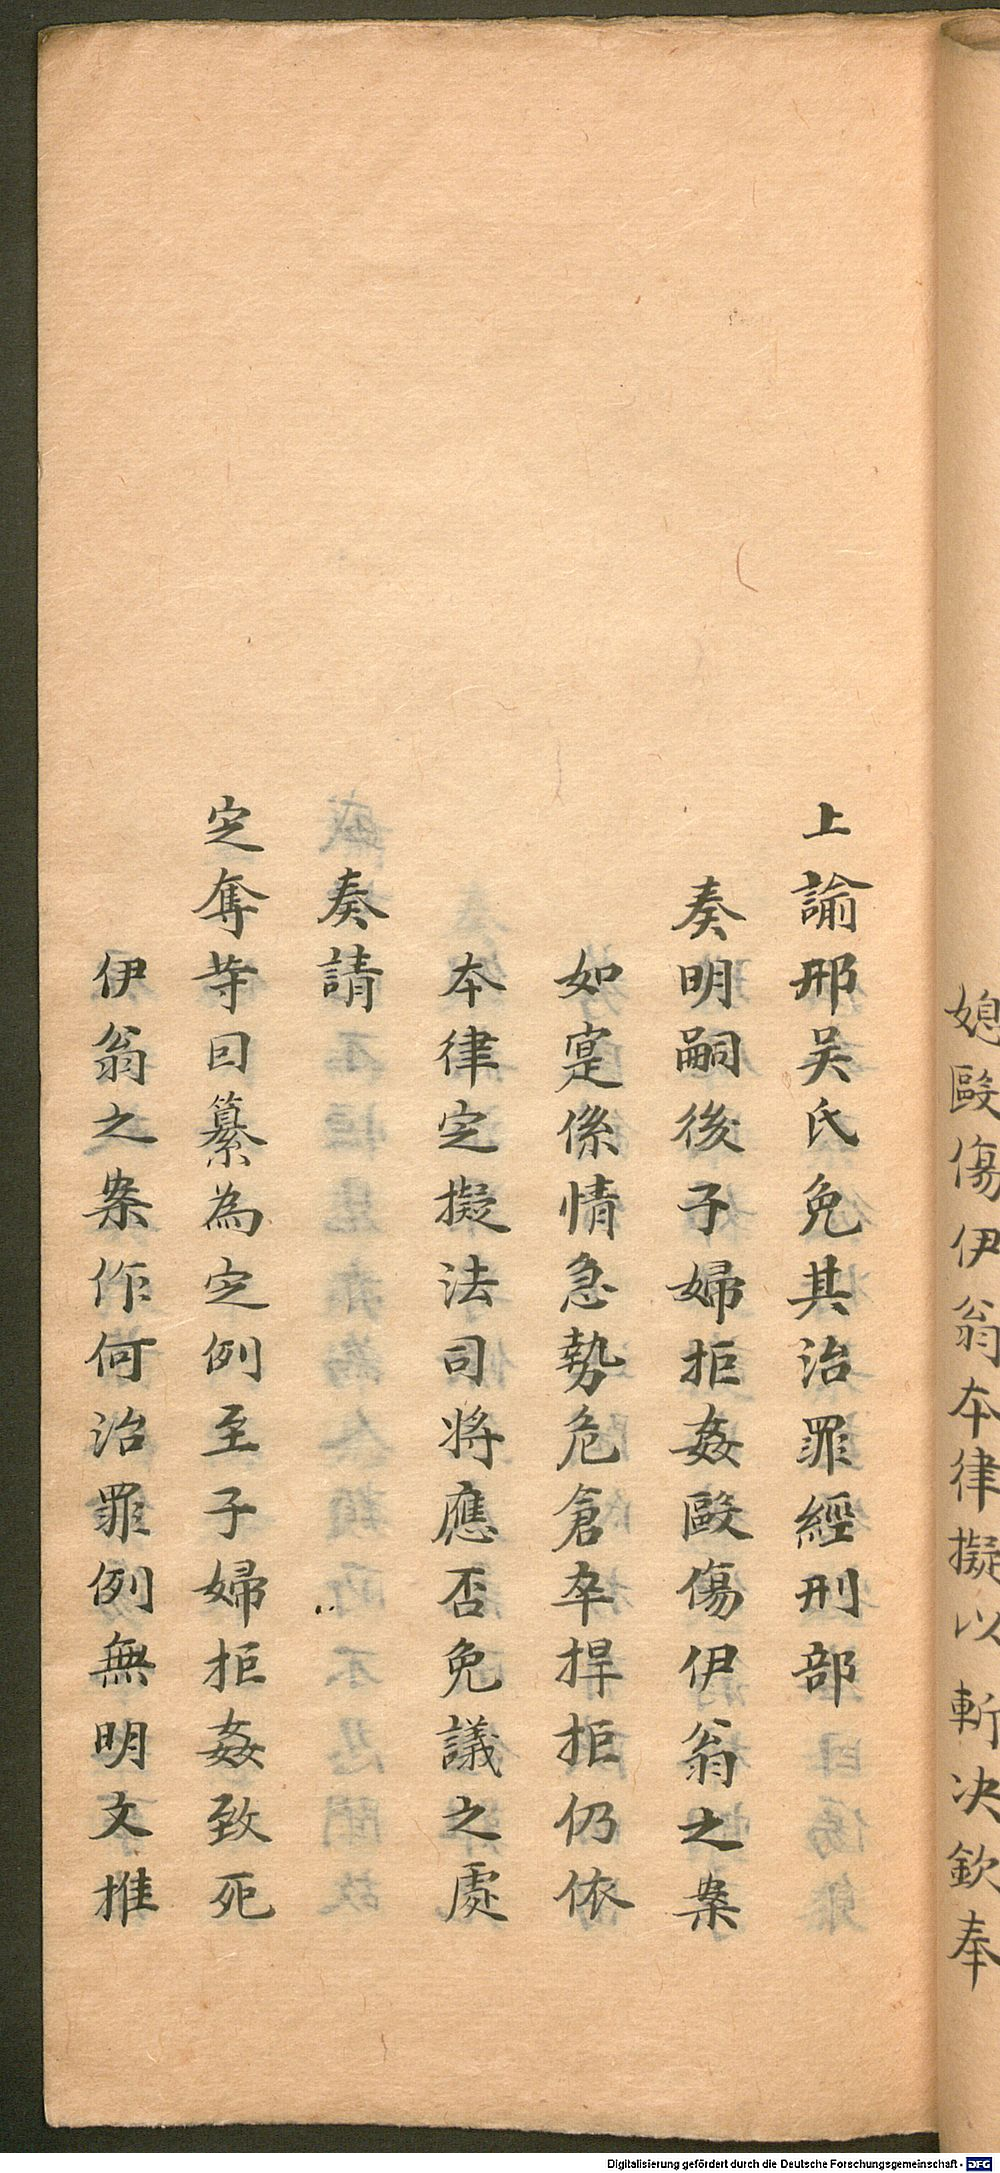 媳毆傷伊翁本律擬以斬决欽奉
上諭邢吴氏免其治罪經刑部
奏明嗣後子婦拒姦毆傷伊翁之案
如寔係情急勢危倉卒捍拒仍依
本律定擬法司將應否免議之處
奏請
定奪䓁因纂為定例至子婦拒姦致死
伊翁之案作何治罪例無明文推
Digitalisierung gefördert durch die Deutsche Forschungsgemeinschaft - DFG